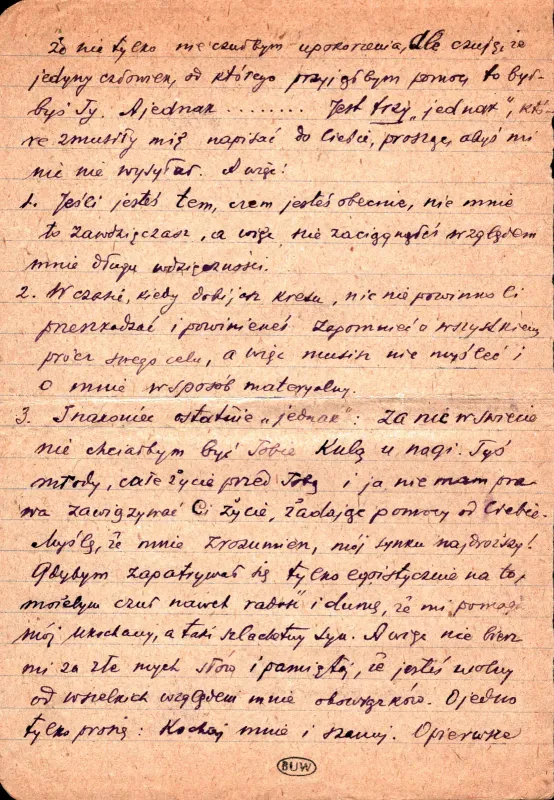 Że nie tylko nie czułbym upokorzenia, ale czuję, że
jedyny człowiek, od którego przyjąłbym pomoc to był-
byś Ty. A jednak ........ Jest trzy „jednak", któ-
re zmusiły mię napisać do Ciebie, prosząc, abyś mi
nic nie wysyłał. A więc:
1. Jeśli jesteś tem, czem jesteś obecnie, nie mnie
to zawdzięczasz, a więc nie zaciągnąłeś względem
mnie długu wdzięczności.
2. W czasie, kiedy dobijasz kresu, nic nie powinno Ci
przeszkadzać i powinieneś zapomnieć o wszystkiem,
prócz swego celu, a więc musisz nie myśleć i
o mnie w sposób materyalny.
3. I nakoniec ostatnie „jednak": za nic w świecie
nie chciałbym być Tobie kulą u nogi. Tyś
młody, całe życie przed Tobą i ja nie mam pra-
wa zawiązywać Ci życie, żądając pomocy od Ciebie.
Myślę, że mnie zrozumiesz, mój synku najdroższy!
Gdybym zapatrywał się tylko egoistycznie na to,
mógłbym czuć nawet radość i dumę, że mi pomaga
mój ukochany, a taki szlachetny syn. A więc nie bierz
mi za złe mych słów i pamiętaj, że jesteś wolny
od wszelkich względem mnie obowiązków. O jedno
tylko proszę: Kochaj mnie i szanuj. O pierwsze
BUW